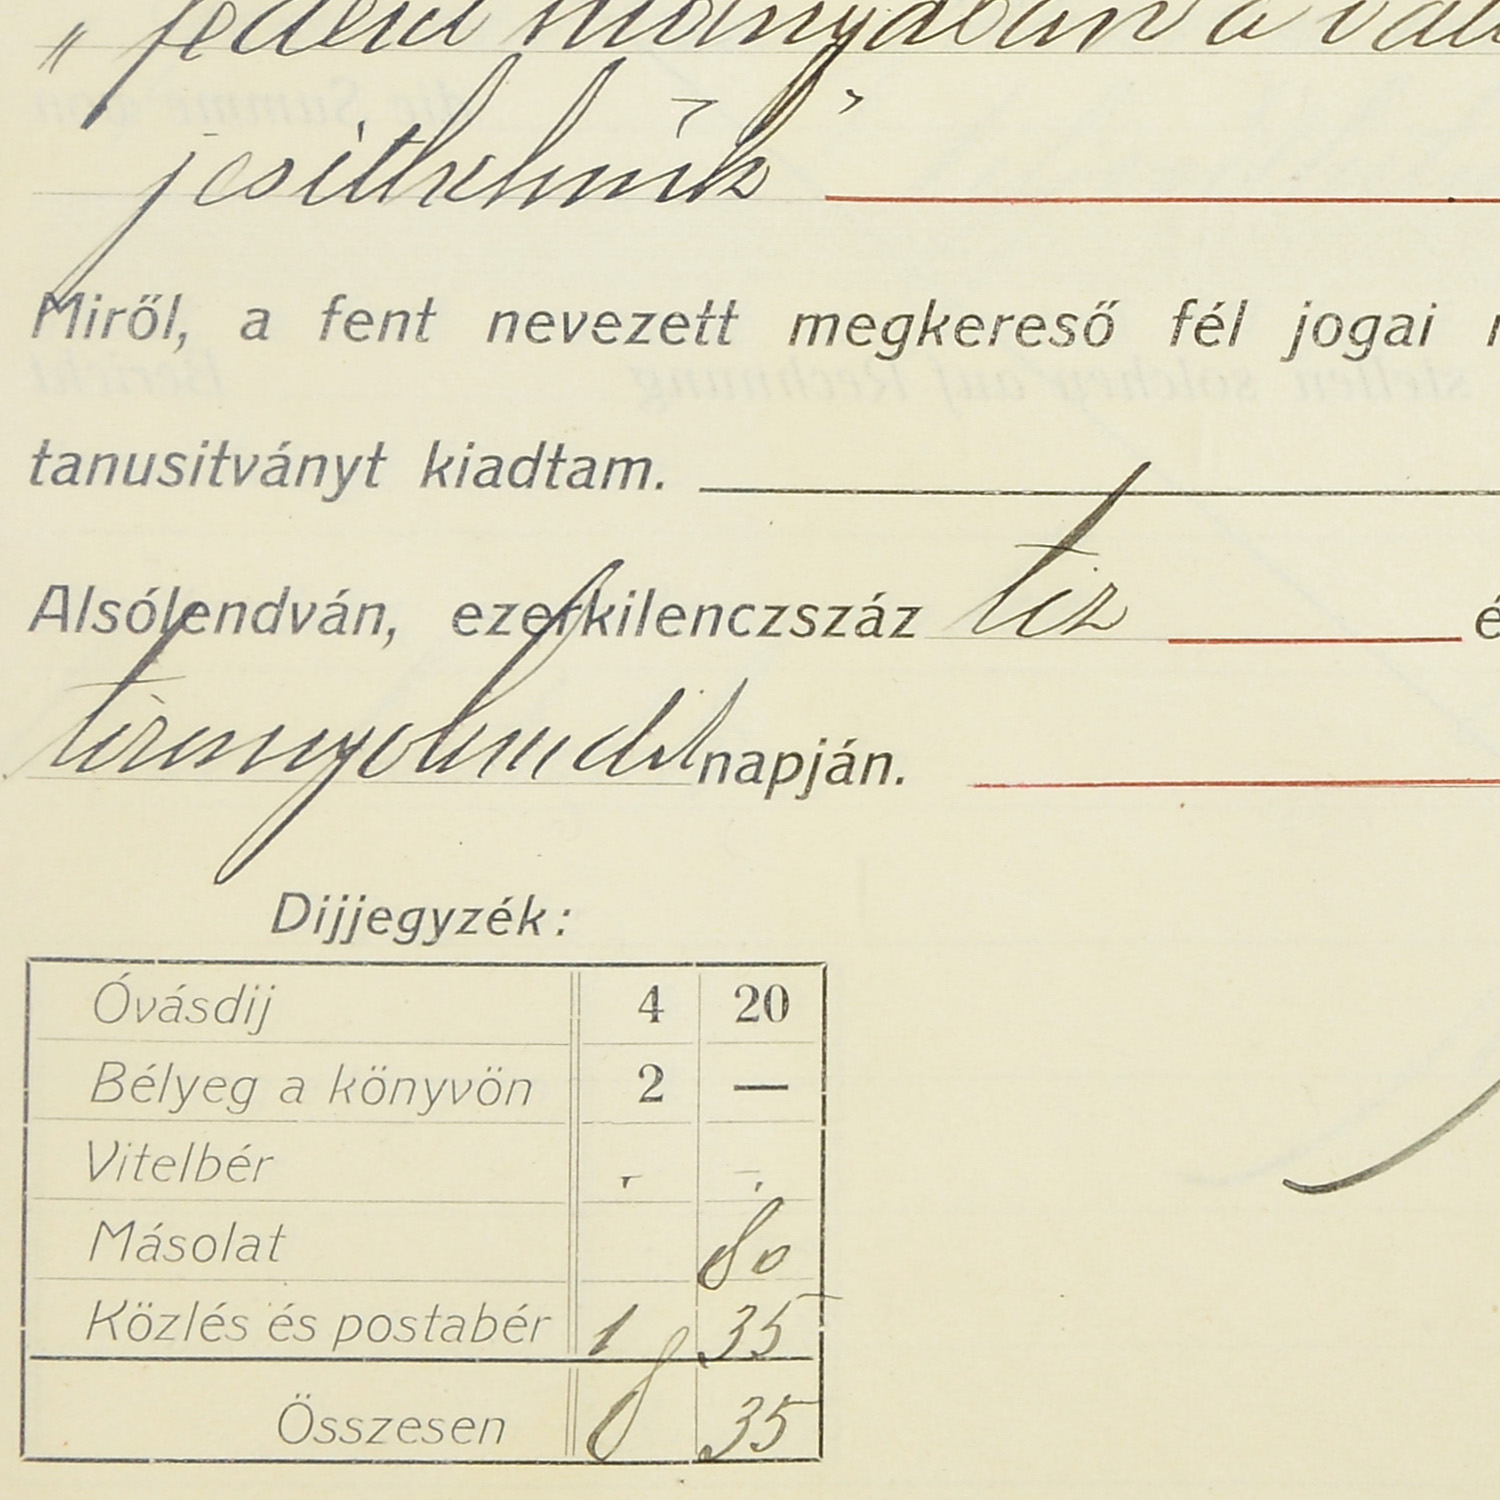 „ fedezet hiányában a vált
jesithetnök
Miről, a fent nevezett megkereső fél jogai
tanusitványt kiadtam.
Alsólendván, ezerkilenczszáz tiz é
tizennyolczadik napján.
Dijjegyzék:
Óvásdij 4 20
Bélyeg a könyvön 2 —
Vitelbér - -
Másolat 80
Közlés és postabér 1 35
Összesen 8 35